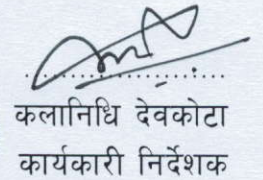 कलानिधि देवकोटा
कार्यकारी निर्देशक